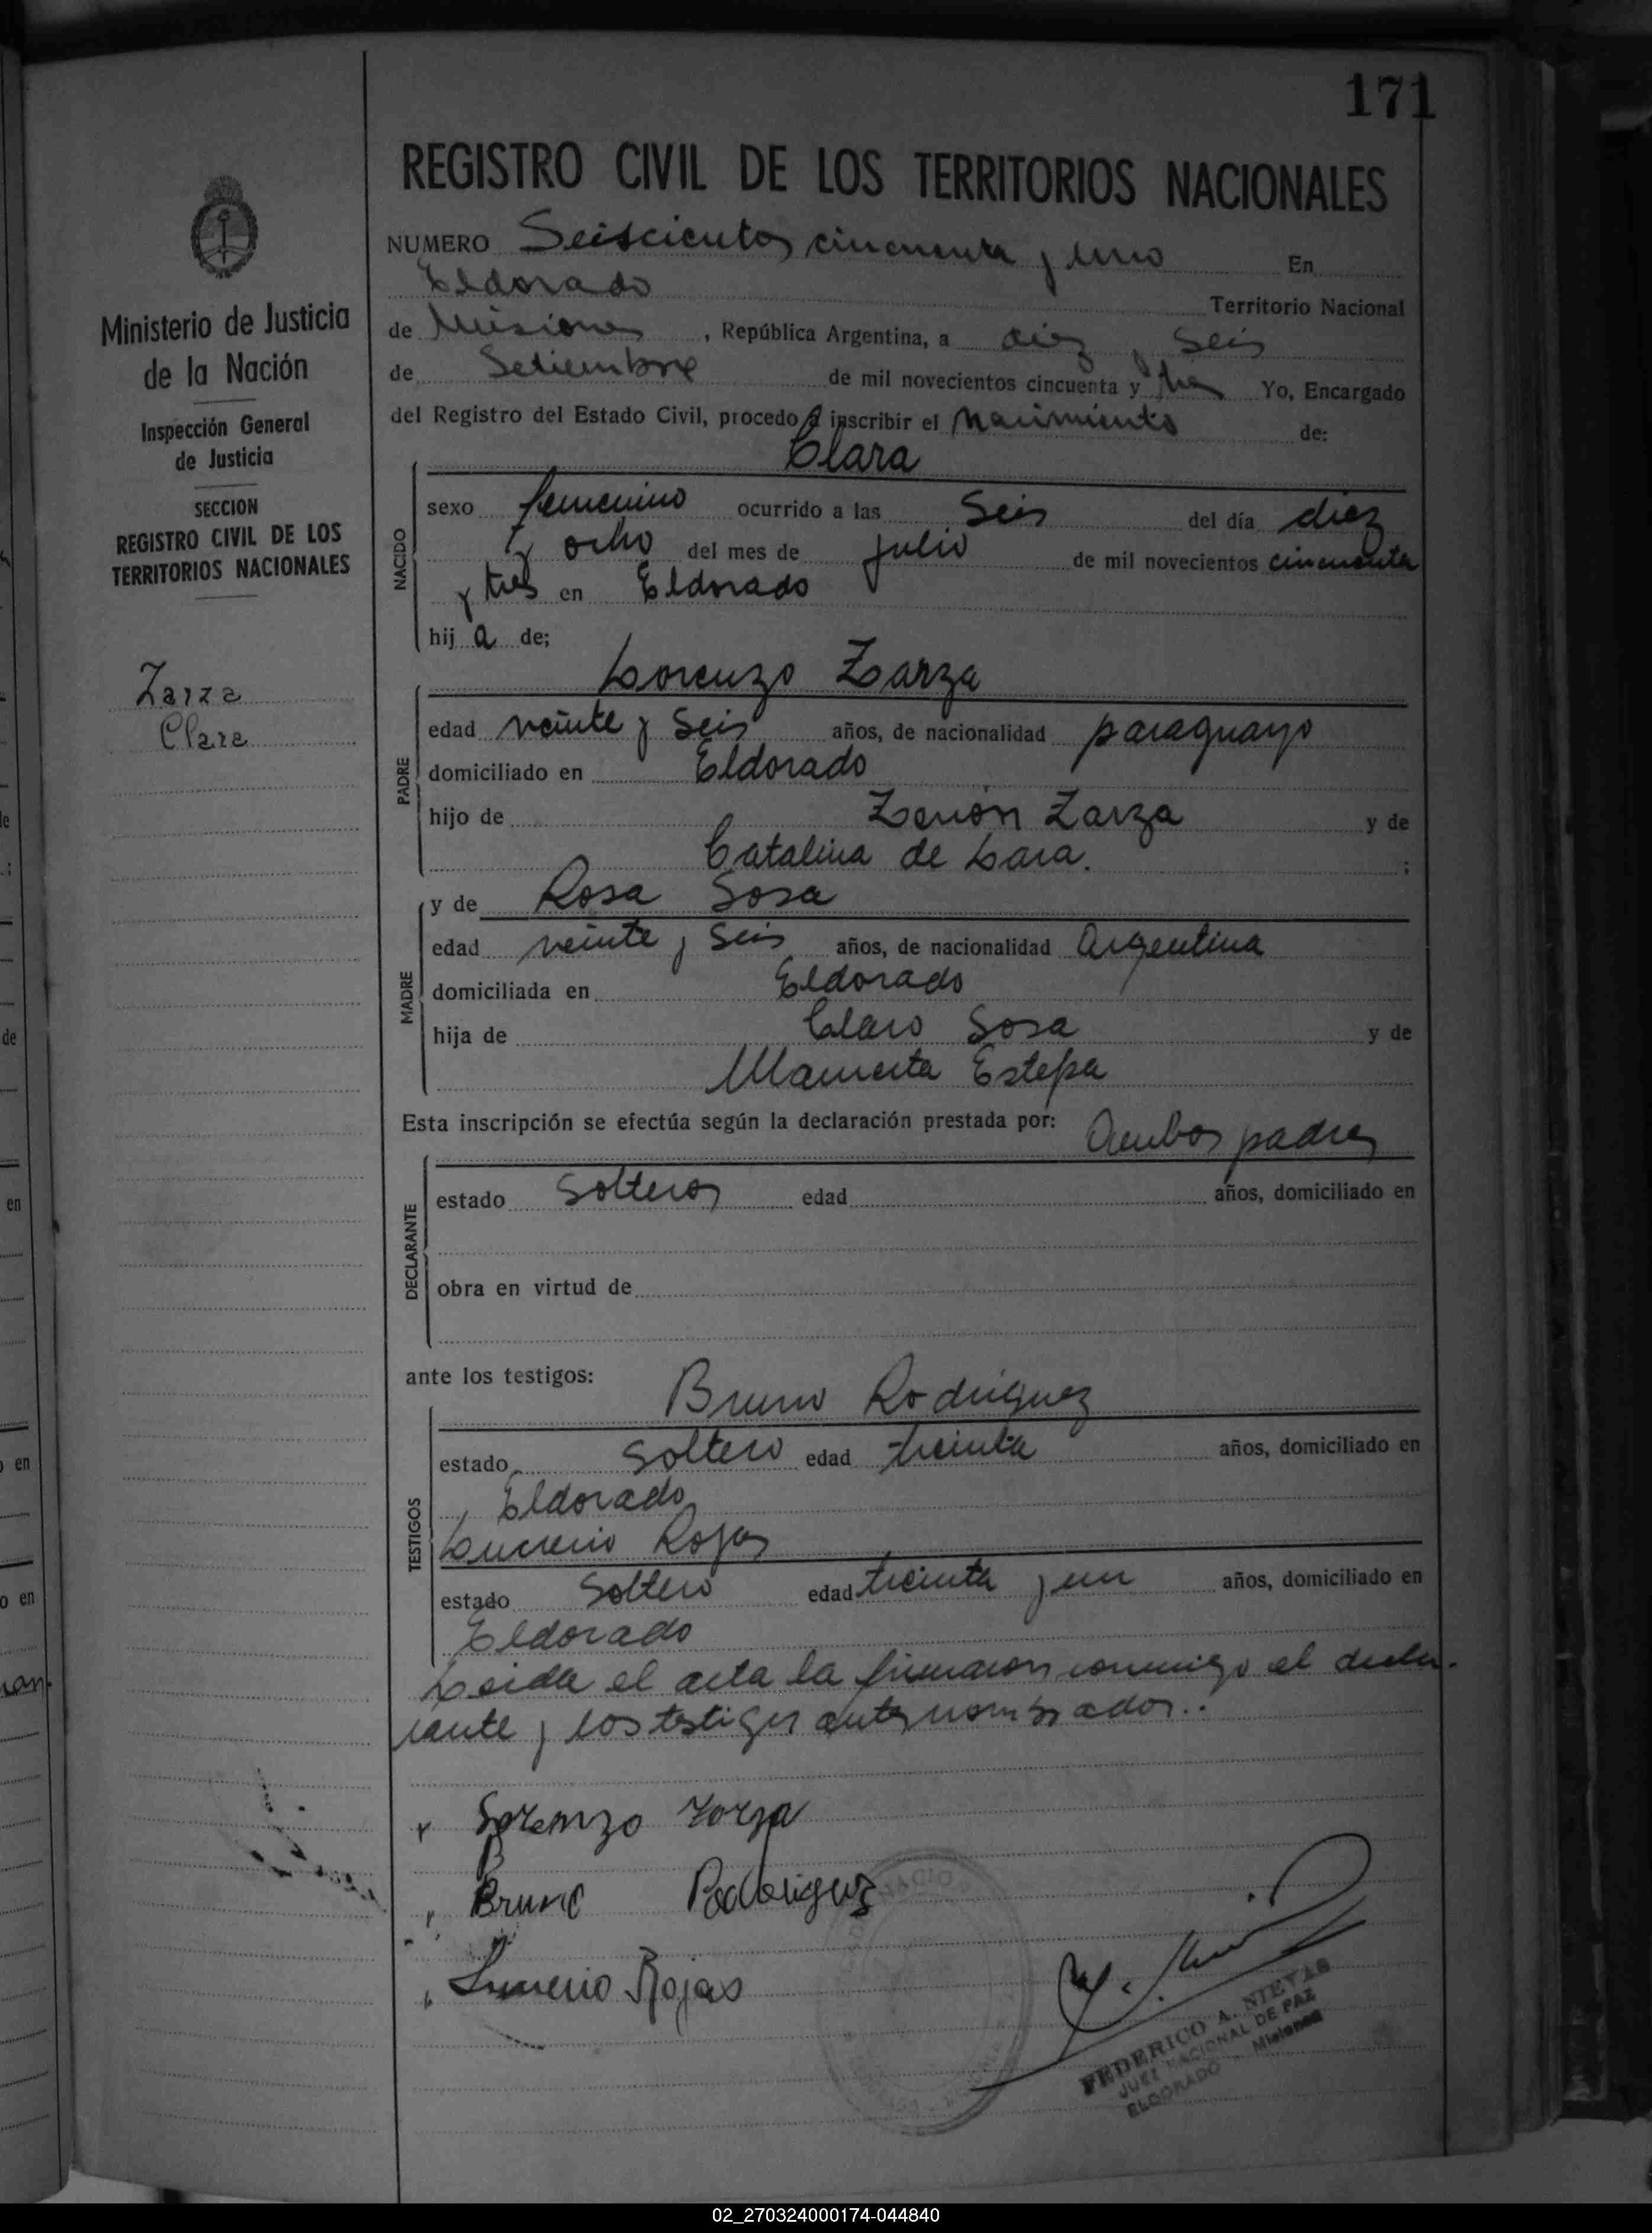 171
REGISTRO CIVIL DE LOS TERRITORIOS NACIONALES
NUMERO Seiscientos cincuenta y uno En
Eldorado Territorio Nacional
de Misiones, República Argentina, a diez y seis
de Setiembre de mil novecientos cincuenta y tres Yo, Encargado
del Registro del Estado Civil, procedo a inscribir el Nacimiento de:
Clara
Ministerio de Justicia
de la Nación
Inspección General
de Justicia
SECCION
REGISTRO CIVIL DE LOS
TERRITORIOS NACIONALES
Zarza
Clara
NACIDO
sexo femenino ocurrido a las Seis del día diez
y ocho del mes de julio de mil novecientos cincuenta
y tres en Eldorado
hija de;
Lorenzo Zarza
PADRE
edad veinte y Seis años, de nacionalidad paraguayo
domiciliado en Eldorado
hijo de Zenón Zarza y de
Catalina de Lara. ;
y de Rosa Sosa
MADRE
edad veinte y Seis años, de nacionalidad Argentina
domiciliada en Eldorado
hija de Claro Sosa y de
Mamerta Estepa
Esta inscripción se efectúa según la declaración prestada por: Ambos padres
DECLARANTE
estado Solteros edad años, domiciliado en
obra en virtud de
ante los testigos:
Bruno Rodriguez
TESTIGOS
estado Soltero edad treinta años, domiciliado en
Eldorado
Rojas
estado Soltero edad treinta y un años, domiciliado en
Eldorado
Leida el acta la firmaron conmigo el decla-
rante y los testigos antes nombrados..
Lorenzo Zorza
Bruno Rodriguez
Rojas
FEDERICO A. NIEVAS
JUEZ NACIONAL DE PAZ
ELDORADO - Misiones
02_270324000174-044840